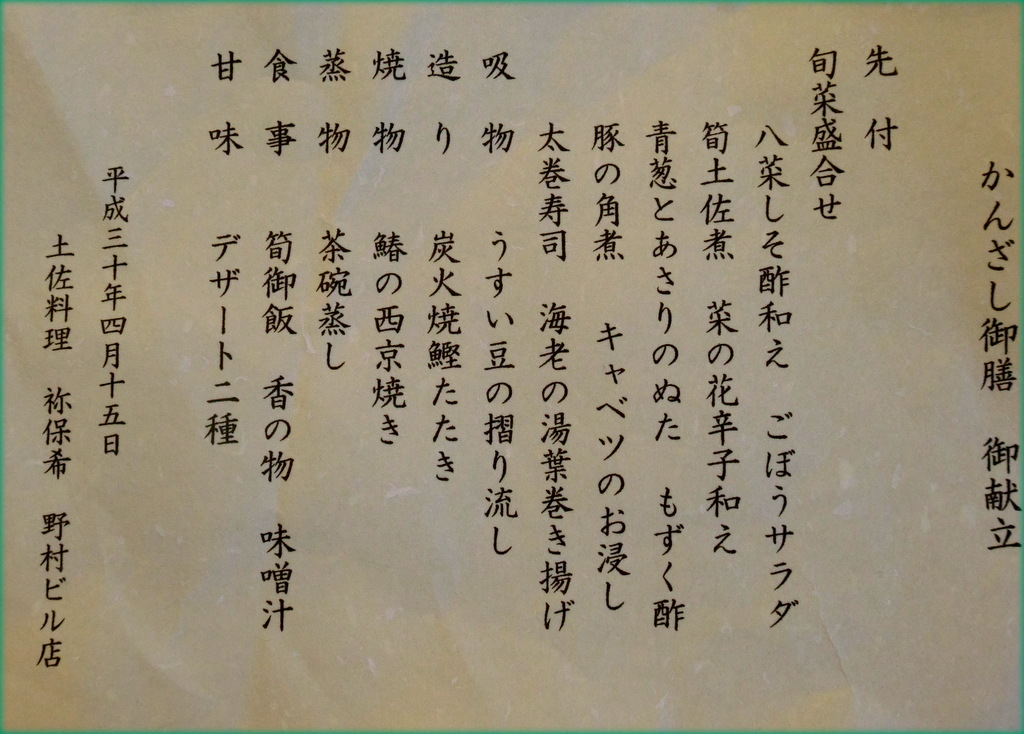 かんざし御膳　御献立
先　付
旬菜盛合せ
八菜しそ酢和え　ごぼうサラダ
筍土佐煮　菜の花辛子和え
青葱とあさりのぬた　もずく酢
豚の角煮　キャベツのお浸し
太巻寿司　海老の湯葉巻き揚げ
吸　物　うすい豆の摺り流し
造　り　炭火焼鰹たたき
焼　物　鰆の西京焼き
蒸　物　茶碗蒸し
食　事　筍御飯　香の物　味噌汁
甘　味　デザート二種
平成三十年四月十五日
土佐料理　祢保希　野村ビル店